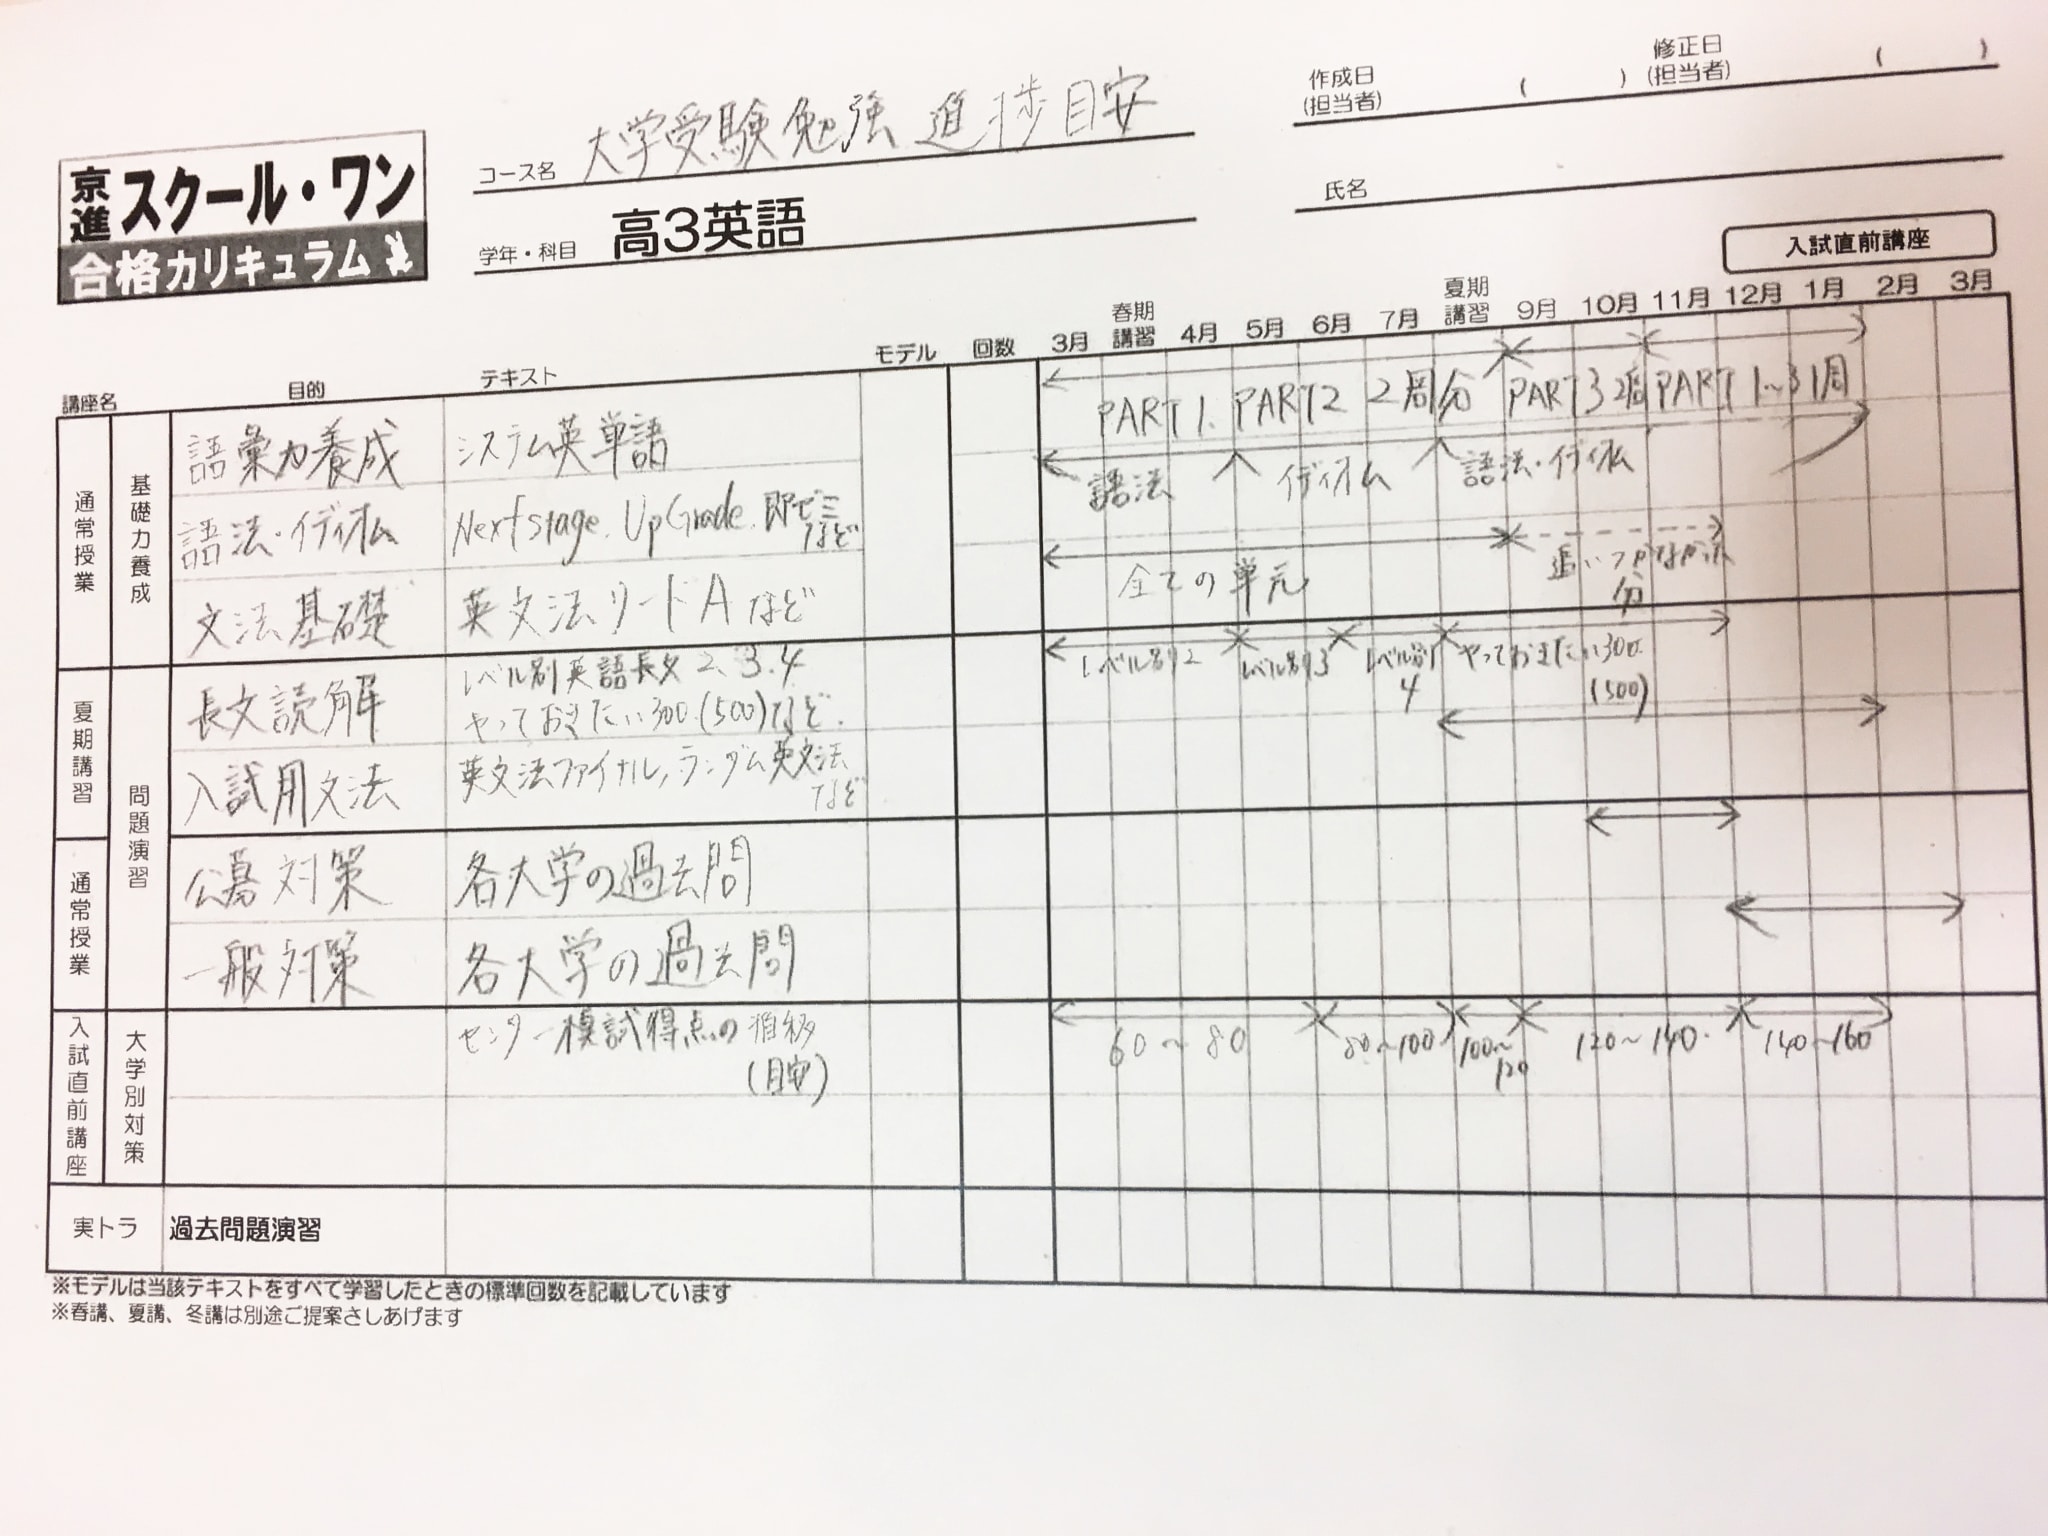 作成日
(担当者)
(　　　)
修正日
(担当者)
(　　　)
京進 スクール・ワン
合格カリキュラム
コース名 大学受験勉強 進捗目安
学年・科目 高3英語
氏名
入試直前講座
講座名 目的 テキスト モデル 回数 3月 春期講習 4月 5月 6月 7月 夏期講習 9月 10月 11月 12月 1月 2月 3月
通常授業
基礎力養成
語彙力養成 システム英単語 PART1. PART2 2周分 PART3 2周 PART1~3 1周
語法・イディオム Nextstage. UpGrade. 即ゼミ など 語法 イディオム 語法・イディオム
文法基礎 英文法リードA など 全ての単元 追いつかなかった分
夏期講習
問題演習
長文読解 レベル別英語長文 2、3.4 やっておきたい300.(500)など. レベル別2 レベル別3 レベル別4 やっておきたい300. (500)
入試用文法 英文法ファイナル, ランダム英文法 など
通常授業
公募対策 各大学の過去問
一般対策 各大学の過去問
入試直前講座
大学別対策
センター模試得点の推移 (目安) 60~80 80~100 100~120 120~140. 140~160
実トラ 過去問題演習
※モデルは当該テキストをすべて学習したときの標準回数を記載しています
※春講、夏講、冬講は別途ご提案さしあげます